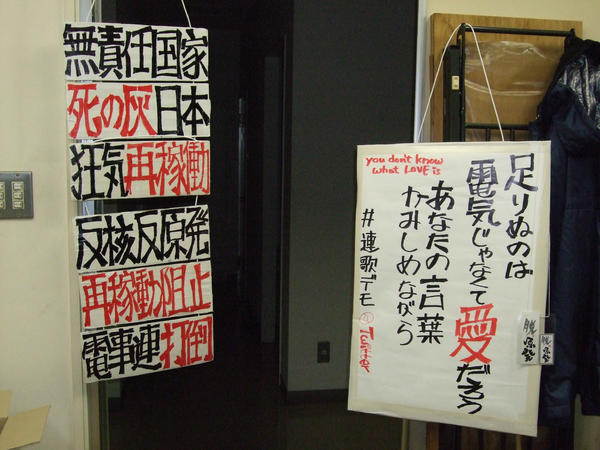 無責任国家
死の灰日本
狂気再稼動
反核反原発
再稼動阻止
電事連打倒
you don't know
what LOVE is
足りぬのは
電気じゃなくて
愛だろう
あなたの言葉
かみしめながら
#連歌デモ @Twitter
脱原発
脱原発